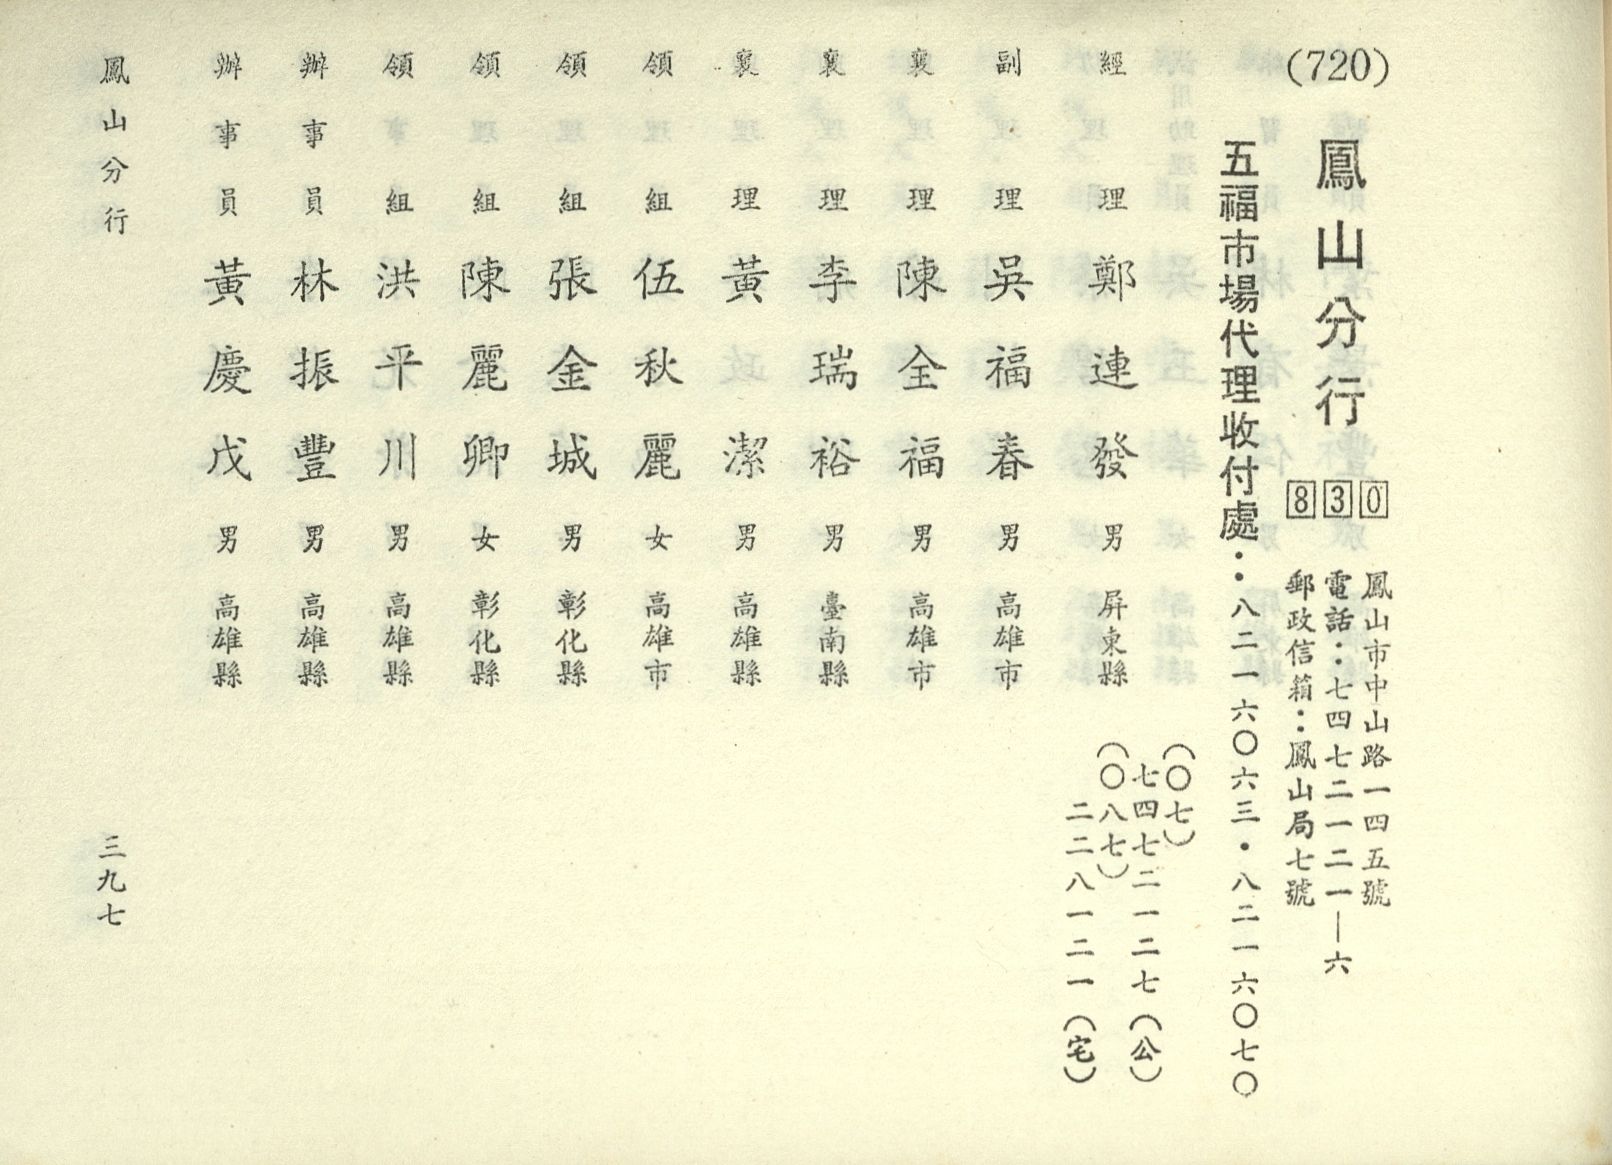 (720)
鳳山分行
830
鳳山市中山路一四五號
電話：七四七二一二一—六
郵政信箱：鳳山局七號
五福市場代理收付處：八二一六〇六三・八二一六〇七〇
經理 鄭連發 男 屏東縣
（〇七）
七四七二一二七（公）
（〇八七）
二二八一二一（宅）
副理 吳福春 男 高雄市
襄理 陳全福 男 高雄市
襄理 李瑞裕 男 臺南縣
襄理 黃潔 男 高雄縣
領組 伍秋麗 女 高雄市
領組 張金城 男 彰化縣
領組 陳麗卿 女 彰化縣
領組 洪平川 男 高雄縣
辦事員 林振豐 男 高雄縣
辦事員 黃慶戊 男 高雄縣
鳳山分行
三九七